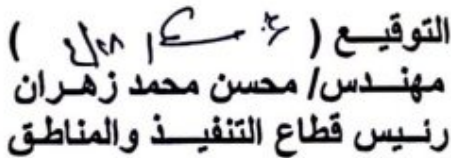 التوقيع ( )
مهندس/ محسن محمد زهران
رئيس قطاع التنفيذ والمناطق